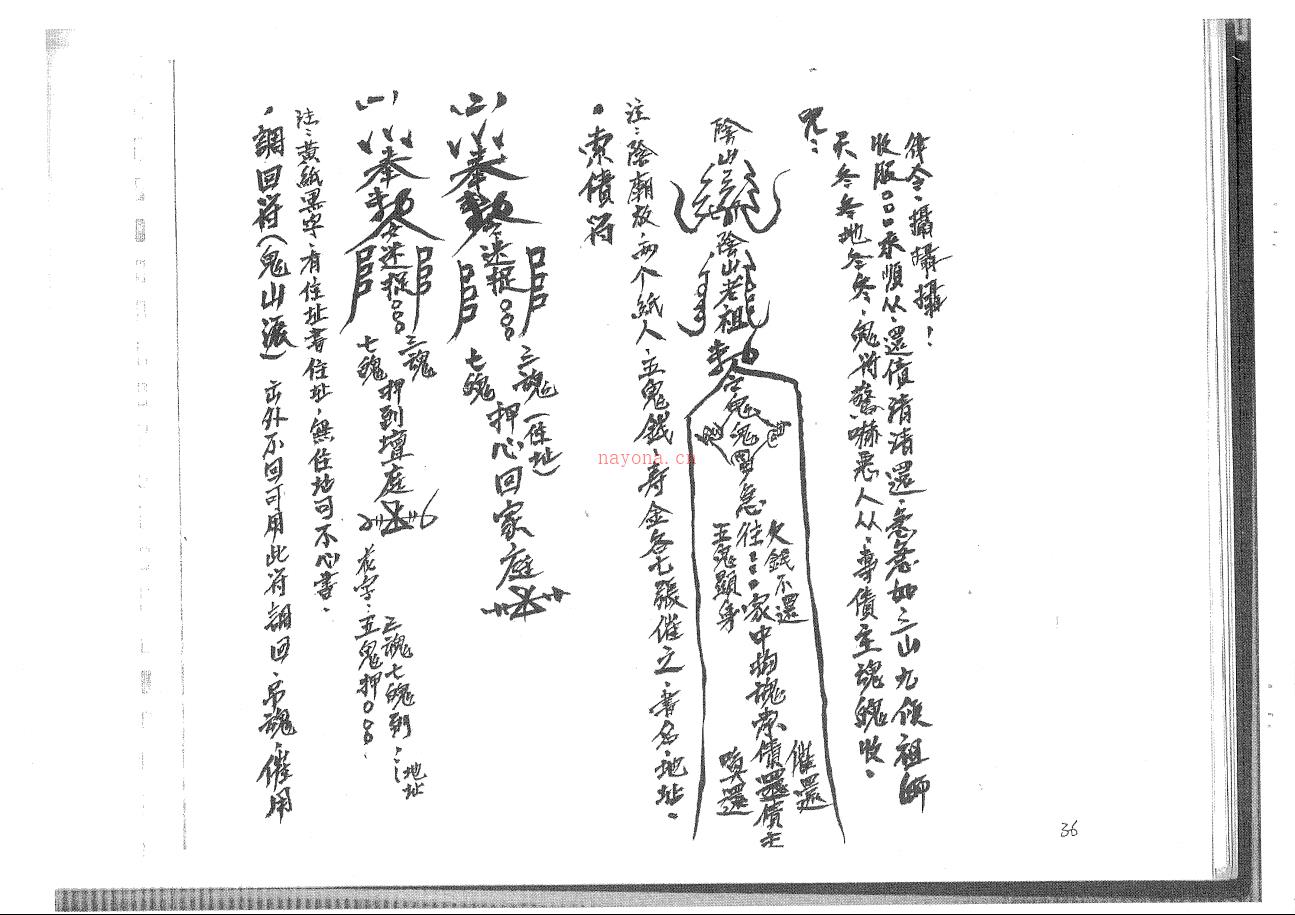 咒：
天冬冬地冬冬，鬼將驚嚇惡人从，專債主魂魄收。
收服□□□來順从，還債清清還，急急如三山九侯祖師
律令，攝攝攝！
陰山
陰山老祖
奉
令
急往□□□家中拘魂索債還債主
欠錢不還
五鬼顯身
催還
嘆還
注：陰廟放，兩个紙人，五鬼錢，壽金各七張催之，書名，地址。
·索債符
(二)
奉敕令速捉○○○
三魂
七魄
(住址)
押心回家庭
(一)
奉敕令速捉○○○
三魂
七魄
押到壇庭
花字：五鬼押○○○，
三魂七魄到…
地址
注：黃紙黑字，有住址書住址，無住址可不心書。
·調回符(鬼山派)
出外不回可用此符調回，吊魂，催用
nayona.cn
36